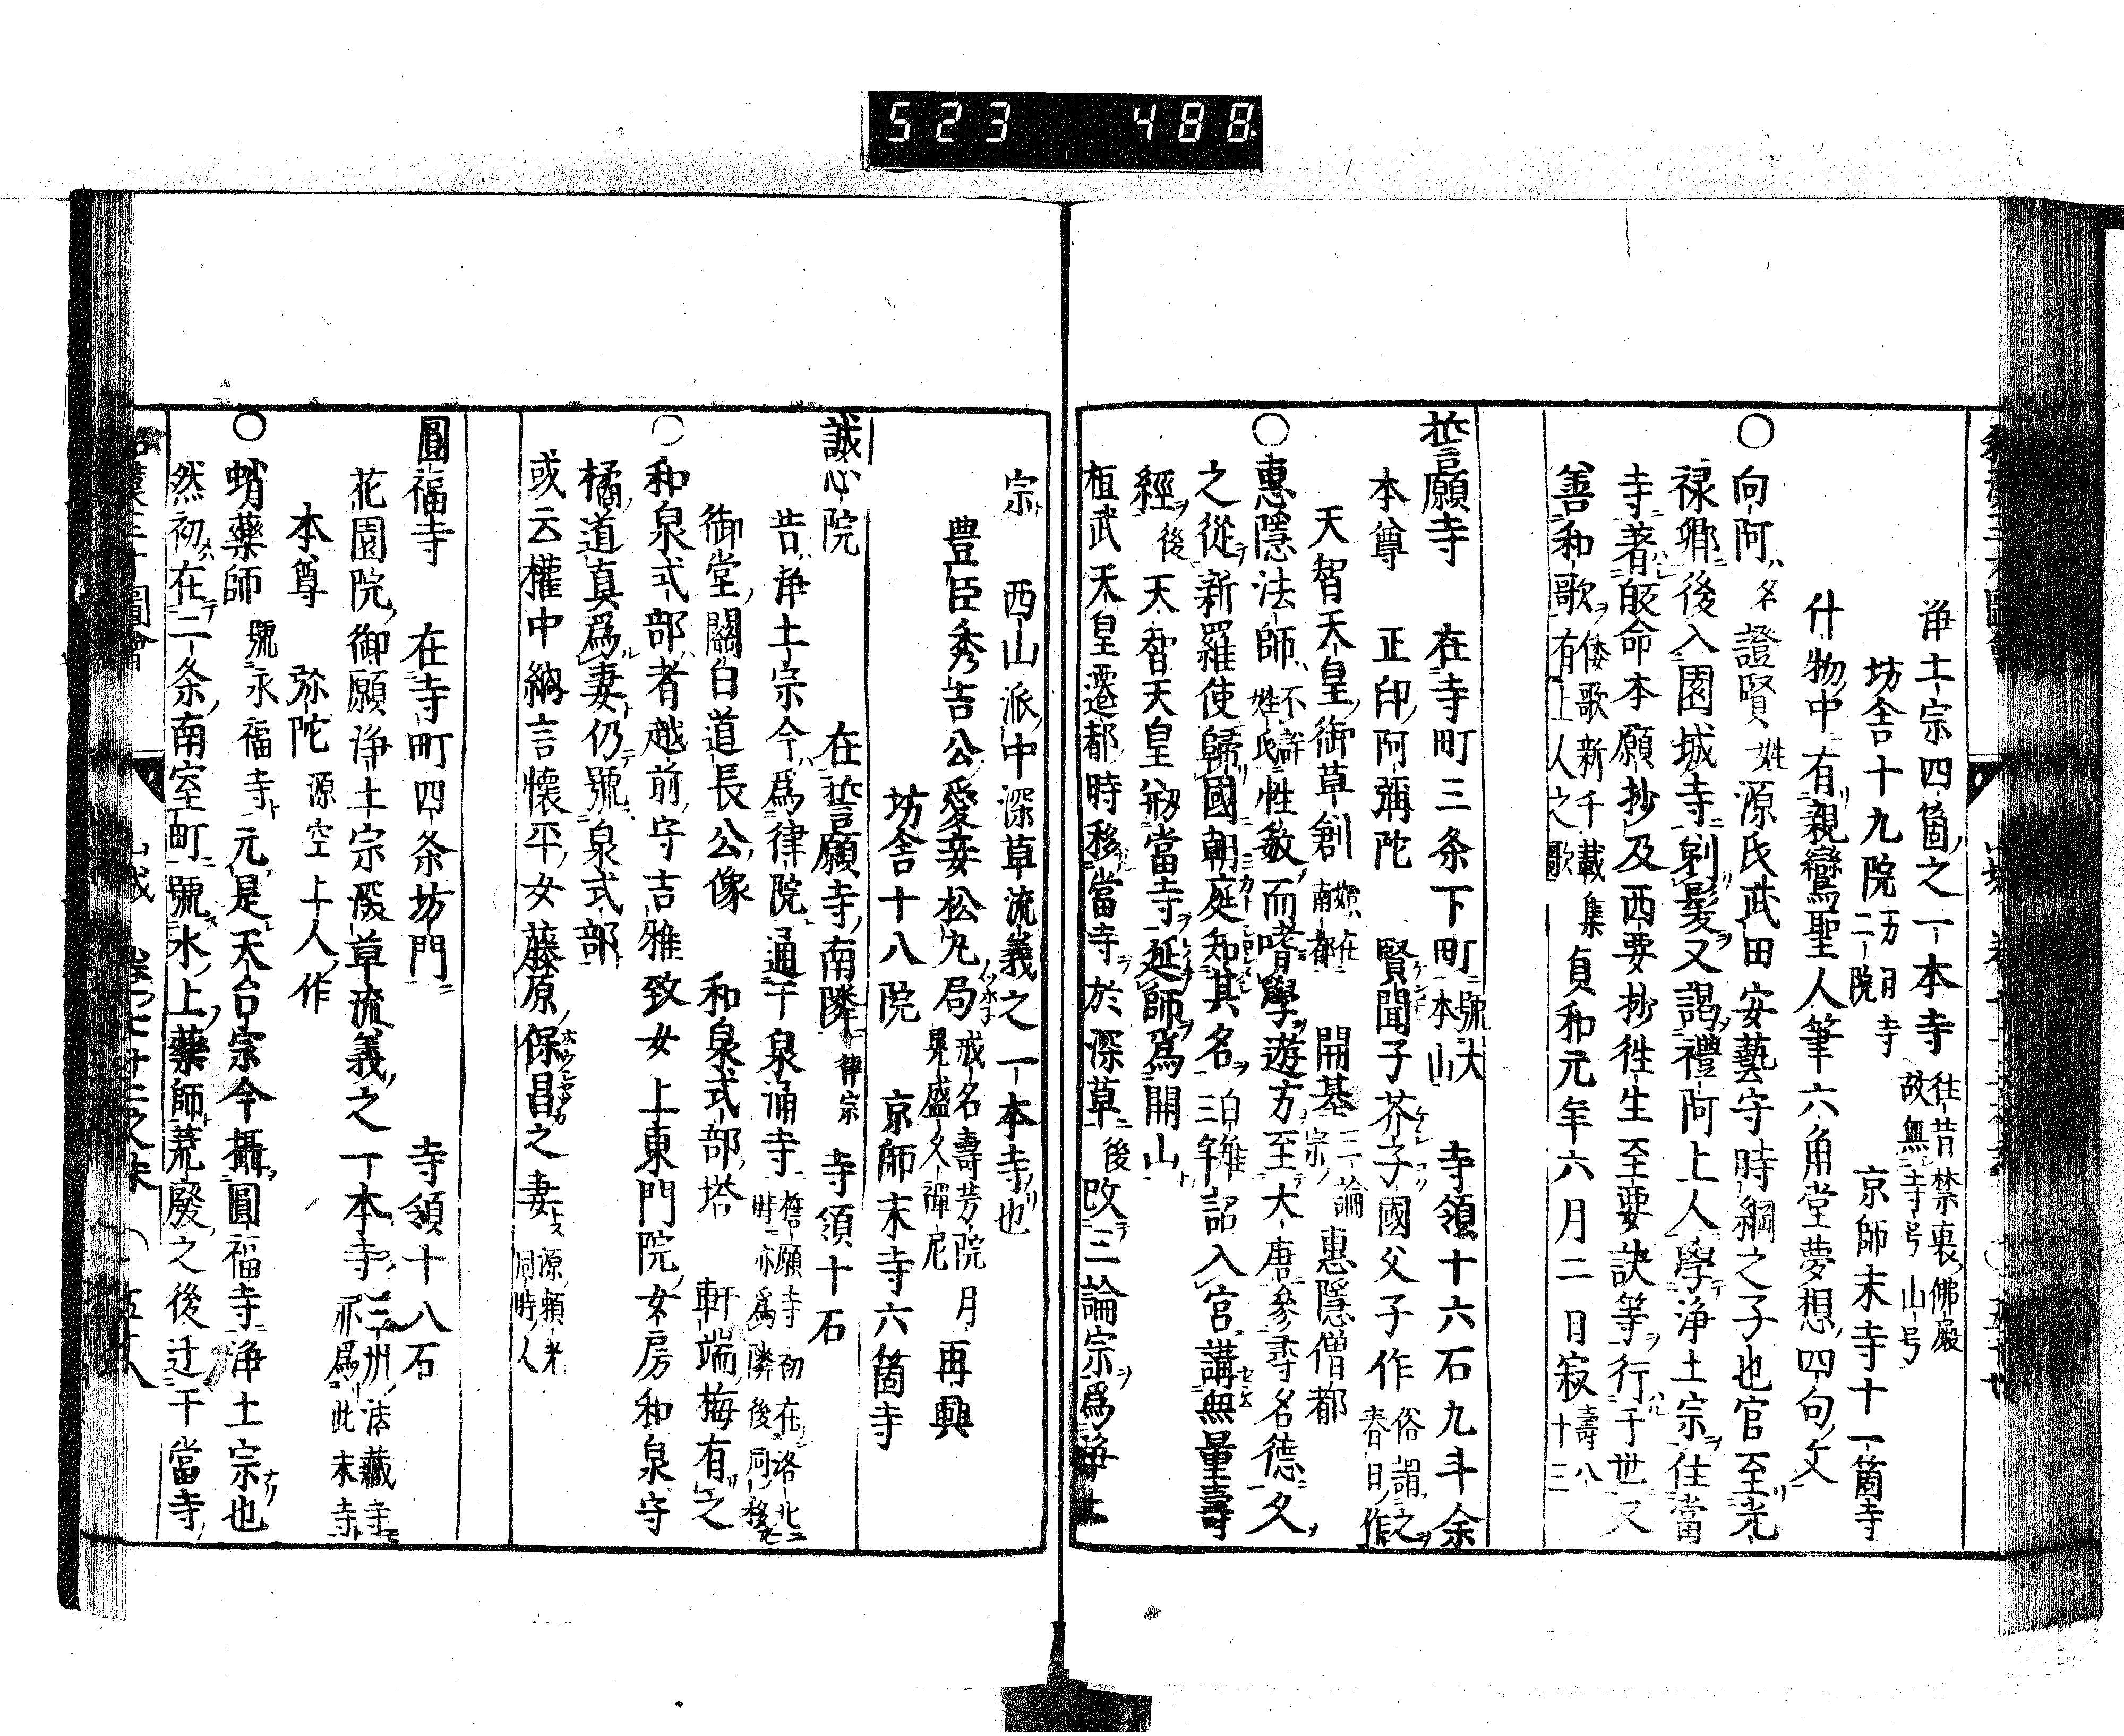 523 488
淨土宗四箇之一本寺 往昔禁裏佛殿故無寺号山号
坊舎十九院 方日寺二院 京師末寺十一箇寺
什物中有親鸞聖人筆六角堂夢想四句文
〇向阿 名 證賢 姓 源氏武田安藝守時綱之子也官至光
禄卿後入園城寺剃髪又謁禮阿上人學浄土宗住當
寺著皈命本願抄及西要抄徃生至要訣等行于世又
善和歌 倭歌新千載集有上人之歌 貞和元年六月二日寂 壽八十三
誓願寺 在寺町三条下町 號大本山 寺領十六石九斗余
本尊 正印阿彌陀 賢聞子芥子國父子作 俗謂之春日作
天智天皇御草創 始在南都 開基 三論宗 惠隱僧都
〇惠隱法師 不詳姓氏 性敏而嗜學遊方至大唐參尋名德久
之從新羅使歸國朝庭知其名 白雉三年 詔入宮講無量壽
經 後 天智天皇剏當寺延師爲開山
桓武天皇遷都時移當寺於深草 後 改三論宗爲淨土
宗 西山派中深草流義之一本寺也
豊臣秀吉公愛妾松丸局 戒名壽芳院月晃盛久禪尼 再興
坊舎十八院 京師末寺六箇寺
誠心院 在誓願寺南隣 律宗 寺領十石
昔淨土宗今爲律院通干泉涌寺 誓願寺初在洛北時亦爲隣後同移
御堂關白道長公像 和泉式部塔 軒端梅有之
〇和泉式部者越前守吉雅致女上東門院女房和泉守
橘道真爲妻仍號泉式部
或云權中納言懷平女藤原保昌之妻 源頼光同時人
圓福寺 在寺町四条坊門 寺領十八石
花園院御願淨土宗深草流義之一本寺 三州法藏寺亦爲此末寺
本尊 弥陀 源空上人作
〇蛸藥師 號永福寺 元是天台宗今攝圓福寺淨土宗也
然初在二条南室町號水上藥師荒廢之後迁干當寺